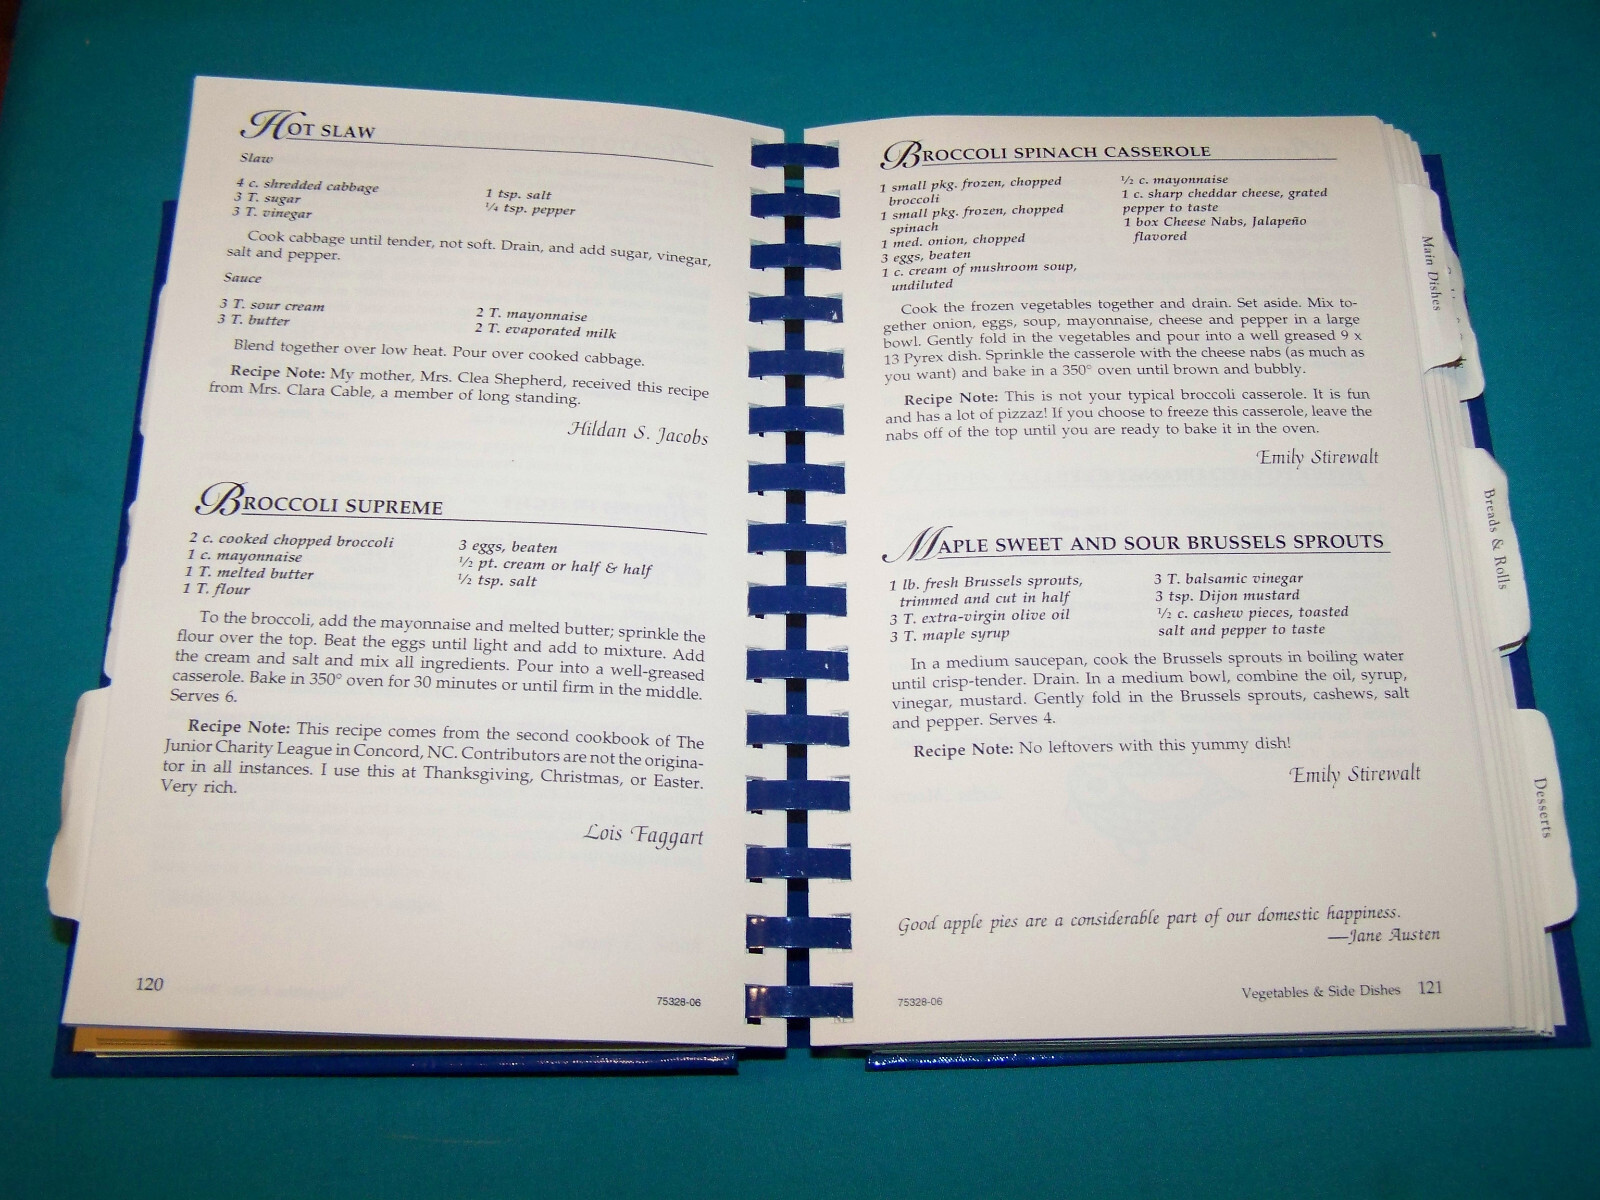 HOT SLAW
Slaw
4 c. shredded cabbage
3 T. sugar
3 T. vinegar
1 tsp. salt
¼ tsp. pepper
Cook cabbage until tender, not soft. Drain, and add sugar, vinegar,
salt and pepper.
Sauce
3 T. sour cream
3 T. butter
2 T. mayonnaise
2 T. evaporated milk
Blend together over low heat. Pour over cooked cabbage.
Recipe Note: My mother, Mrs. Clea Shepherd, received this recipe
from Mrs. Clara Cable, a member of long standing.
Hildan S. Jacobs
BROCCOLI SUPREME
2 c. cooked chopped broccoli
1 c. mayonnaise
1 T. melted butter
1 T. flour
3 eggs, beaten
½ pt. cream or half & half
½ tsp. salt
To the broccoli, add the mayonnaise and melted butter; sprinkle the
flour over the top. Beat the eggs until light and add to mixture. Add
the cream and salt and mix all ingredients. Pour into a well-greased
casserole. Bake in 350° oven for 30 minutes or until firm in the middle.
Serves 6.
Recipe Note: This recipe comes from the second cookbook of The
Junior Charity League in Concord, NC. Contributors are not the origina-
tor in all instances. I use this at Thanksgiving, Christmas, or Easter.
Very rich.
Lois Faggart
120
75328-06
BROCCOLI SPINACH CASSEROLE
1 small pkg. frozen, chopped
broccoli
1 small pkg. frozen, chopped
spinach
1 med. onion, chopped
3 eggs, beaten
1 c. cream of mushroom soup,
undiluted
½ c. mayonnaise
1 c. sharp cheddar cheese, grated
pepper to taste
1 box Cheese Nabs, Jalapeño
flavored
Cook the frozen vegetables together and drain. Set aside. Mix to-
gether onion, eggs, soup, mayonnaise, cheese and pepper in a large
bowl. Gently fold in the vegetables and pour into a well greased 9 x
13 Pyrex dish. Sprinkle the casserole with the cheese nabs (as much as
you want) and bake in a 350° oven until brown and bubbly.
Recipe Note: This is not your typical broccoli casserole. It is fun
and has a lot of pizzaz! If you choose to freeze this casserole, leave the
nabs off of the top until you are ready to bake it in the oven.
Emily Stirewalt
MAPLE SWEET AND SOUR BRUSSELS SPROUTS
1 lb. fresh Brussels sprouts,
trimmed and cut in half
3 T. extra-virgin olive oil
3 T. maple syrup
3 T. balsamic vinegar
3 tsp. Dijon mustard
½ c. cashew pieces, toasted
salt and pepper to taste
In a medium saucepan, cook the Brussels sprouts in boiling water
until crisp-tender. Drain. In a medium bowl, combine the oil, syrup,
vinegar, mustard. Gently fold in the Brussels sprouts, cashews, salt
and pepper. Serves 4.
Recipe Note: No leftovers with this yummy dish!
Emily Stirewalt
Good apple pies are a considerable part of our domestic happiness.
—Jane Austen
75328-06
Vegetables & Side Dishes 121
Main Dishes
Breads & Rolls
Desserts